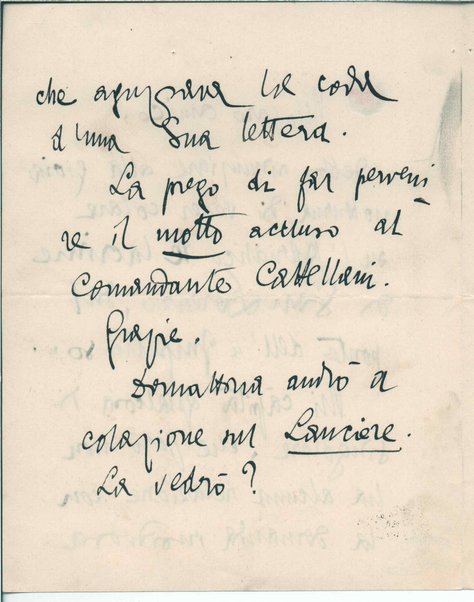 che aguzzava la coda
d'una Sua lettera.
La prego di far perveni
re il motto accluso al
Comandante Cattellani.
Grazie.
Domattina andrò a
colazione sul Lanciere.
La vedrò?